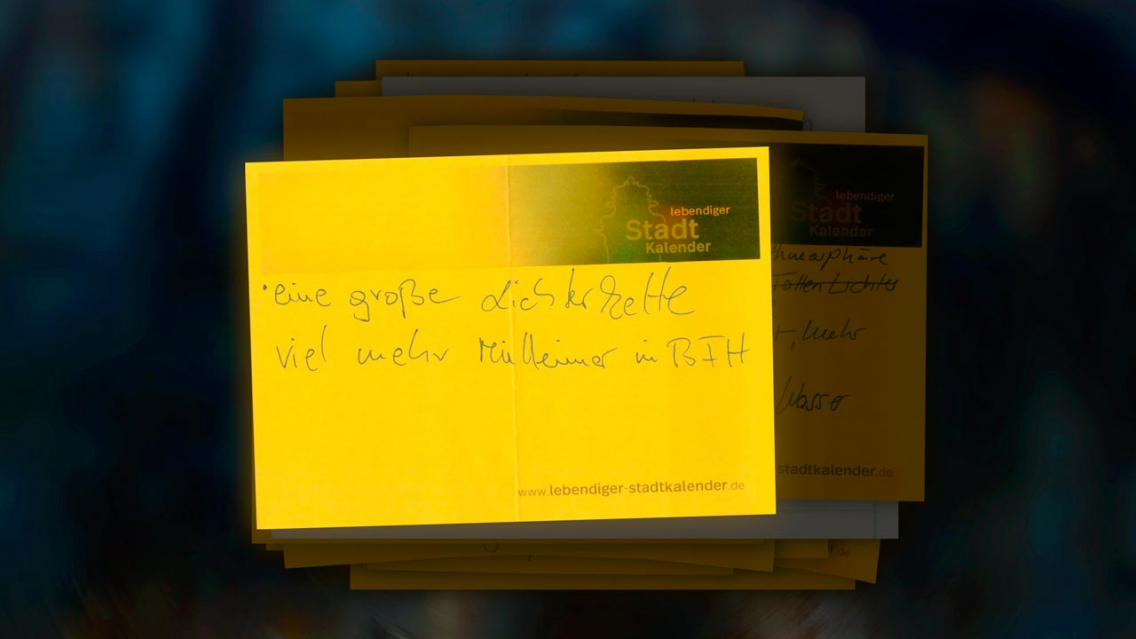 lebendiger
Stadt
Kalender
eine große Lichterkette
viel mehr Mülleimer in BFH
www.lebendiger-stadtkalender.de
lebendiger
Stadt
Kalender
Tollen Lichter
, mehr
Wasser
stadtkalender.de